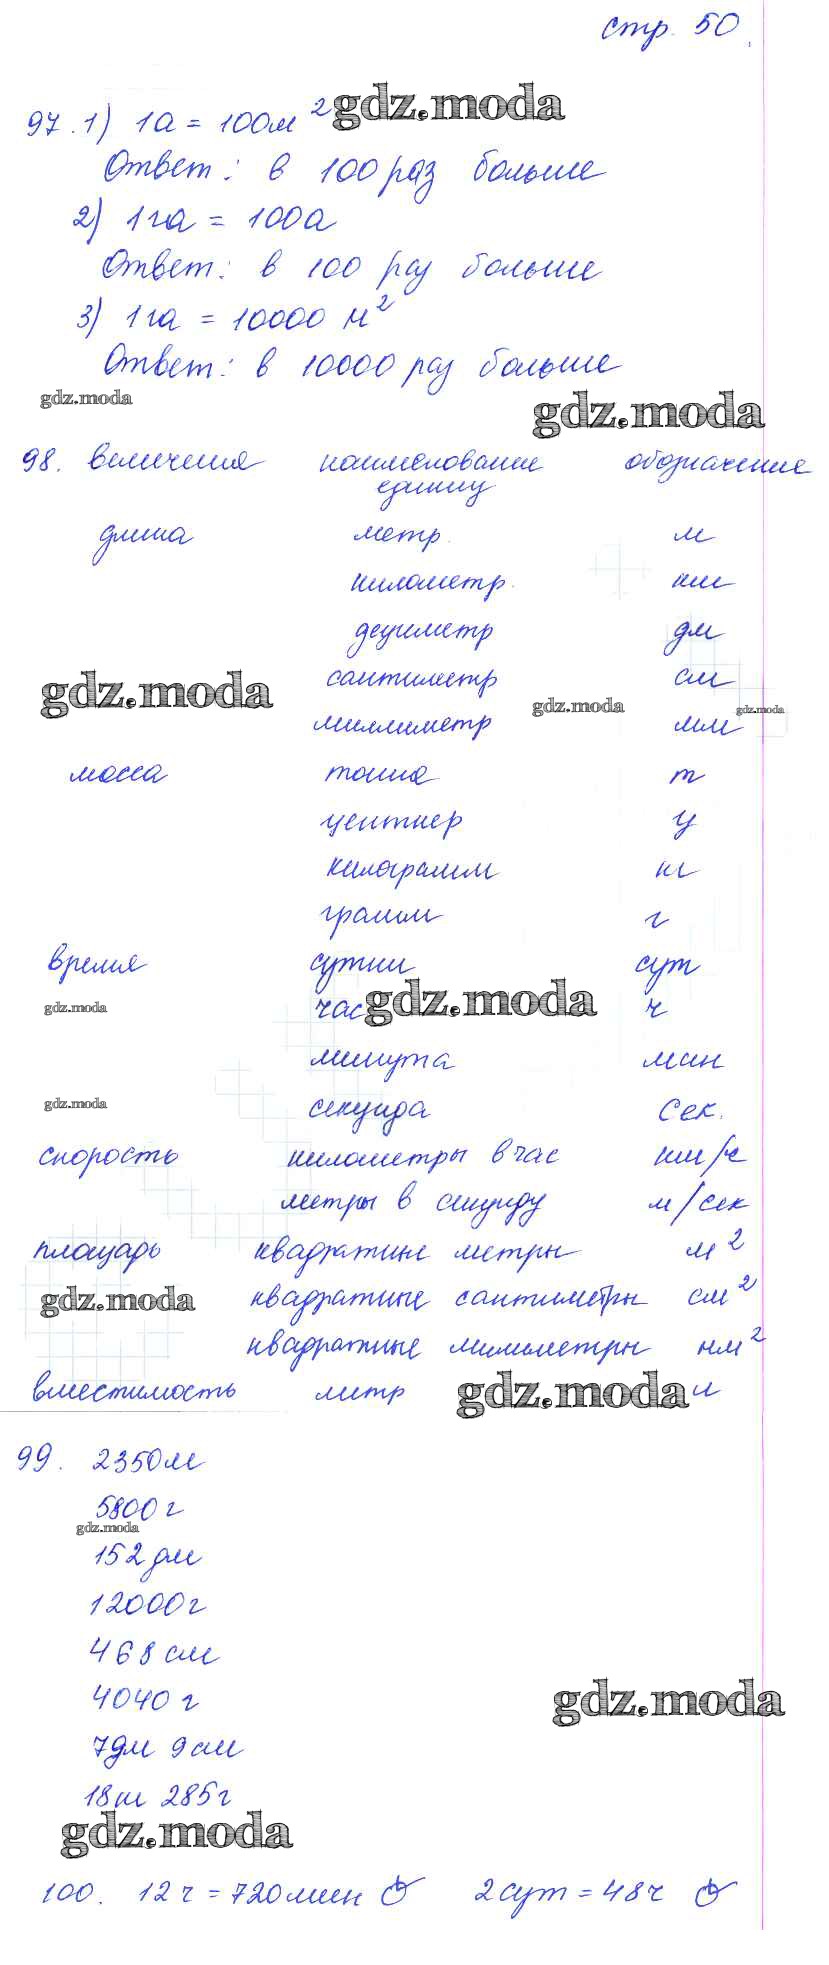 стр. 50
97. 1) 1а = 100м² gdz.moda
Ответ: в 100 раз больше
2) 1га = 100а
Ответ: в 100 раз больше
3) 1га = 10000 м²
Ответ: в 10000 раз больше
gdz.moda gdz.moda
98. величения наименование обозначение
единиц
длина метр. м
километр. км
дециметр дм
gdz.moda сантиметр см
gdz.moda gdz.moda
миллиметр мм
масса тонна т
центнер ц
килограмм кг
грамм г
время сутки сут
gdz.moda час gdz.moda ч
минута мин
gdz.moda секунда сек.
скорость километры в час км/ч
метры в секунду м/сек
площадь квадратные метры м²
gdz.moda квадратные сантиметры см²
квадратные миллиметры мм²
вместимость литр gdz.moda л
99. 2350м
5800г
gdz.moda
152дм
12000г
468см
4040г
gdz.moda
7дм 9см
18кг 285г
gdz.moda
100. 12ч = 720мин 2сут = 48ч